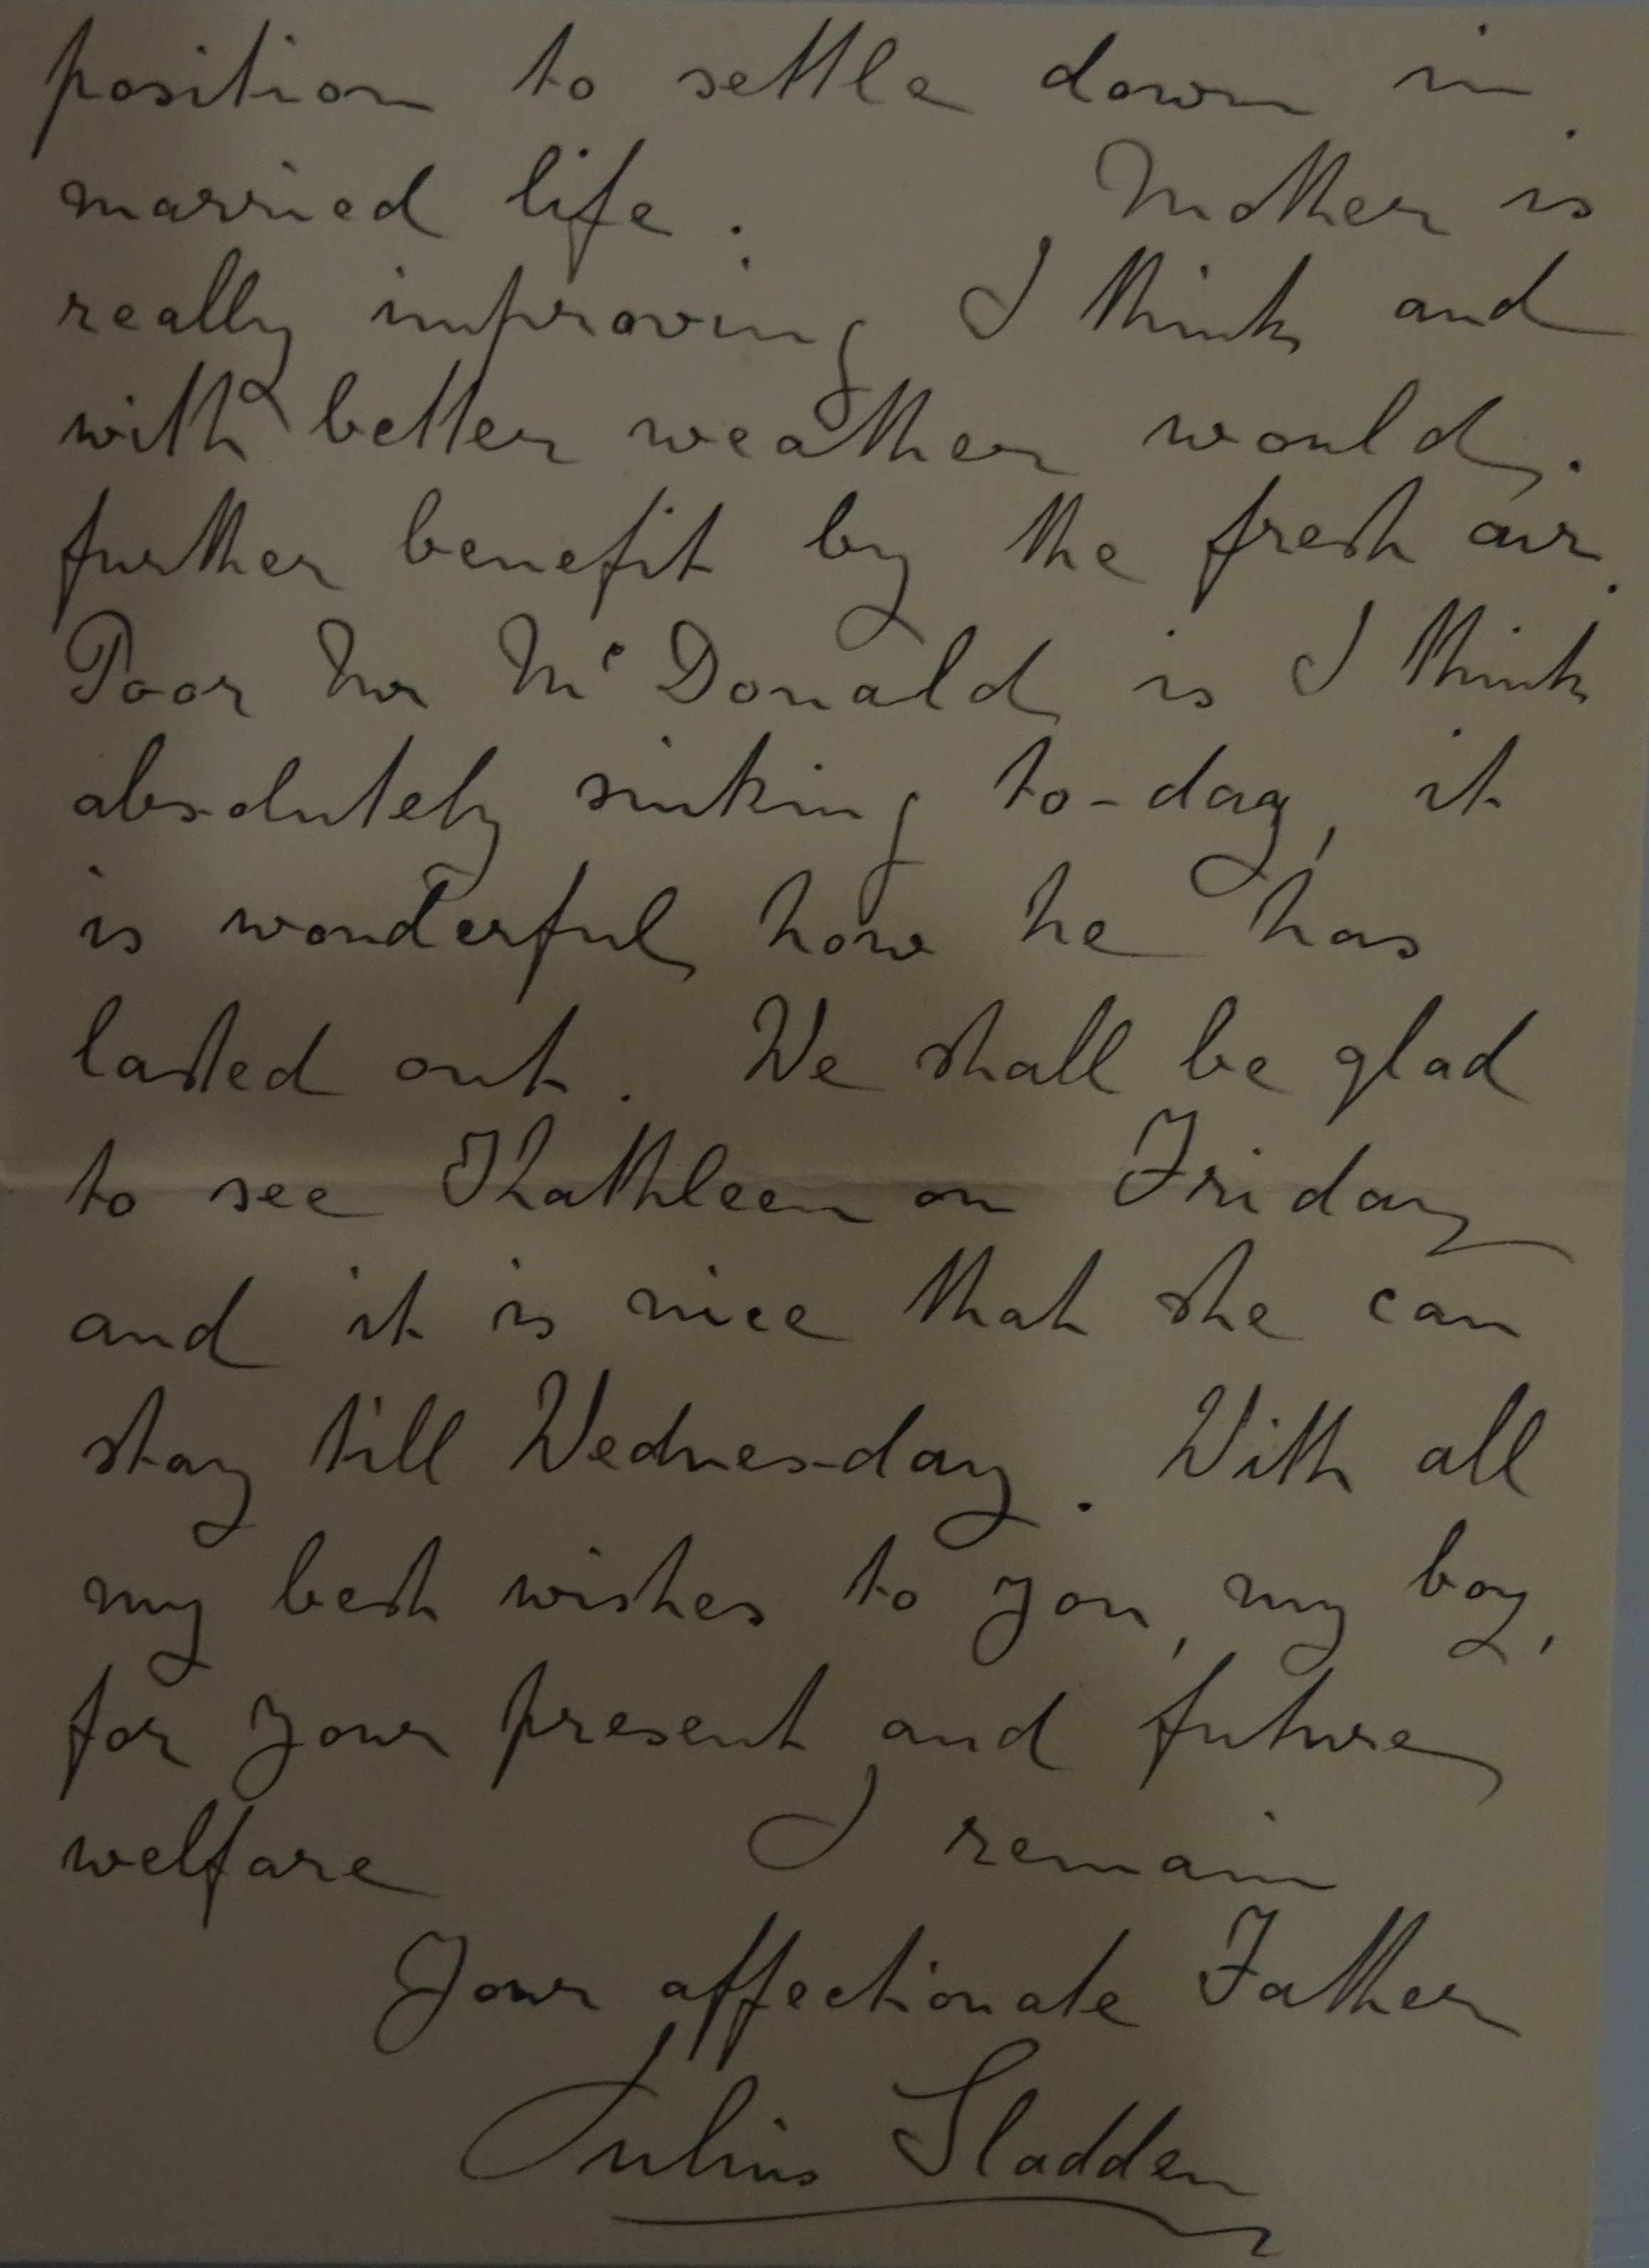 position to settle down in
married life. Mother is
really improving I think and
with better weather would
further benefit by the fresh air.
Poor Mr McDonald is I think
absolutely sinking to-day, it
is wonderful how he has
lasted out. We shall be glad
to see Kathleen on Friday
and it is nice that she can
stay till Wednesday. With all
my best wishes to you, my boy,
for your present and future
welfare I remain
Your affectionate Father
Julius Sladden